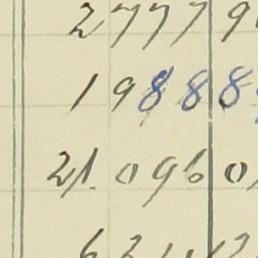 27779
19888
21.0960